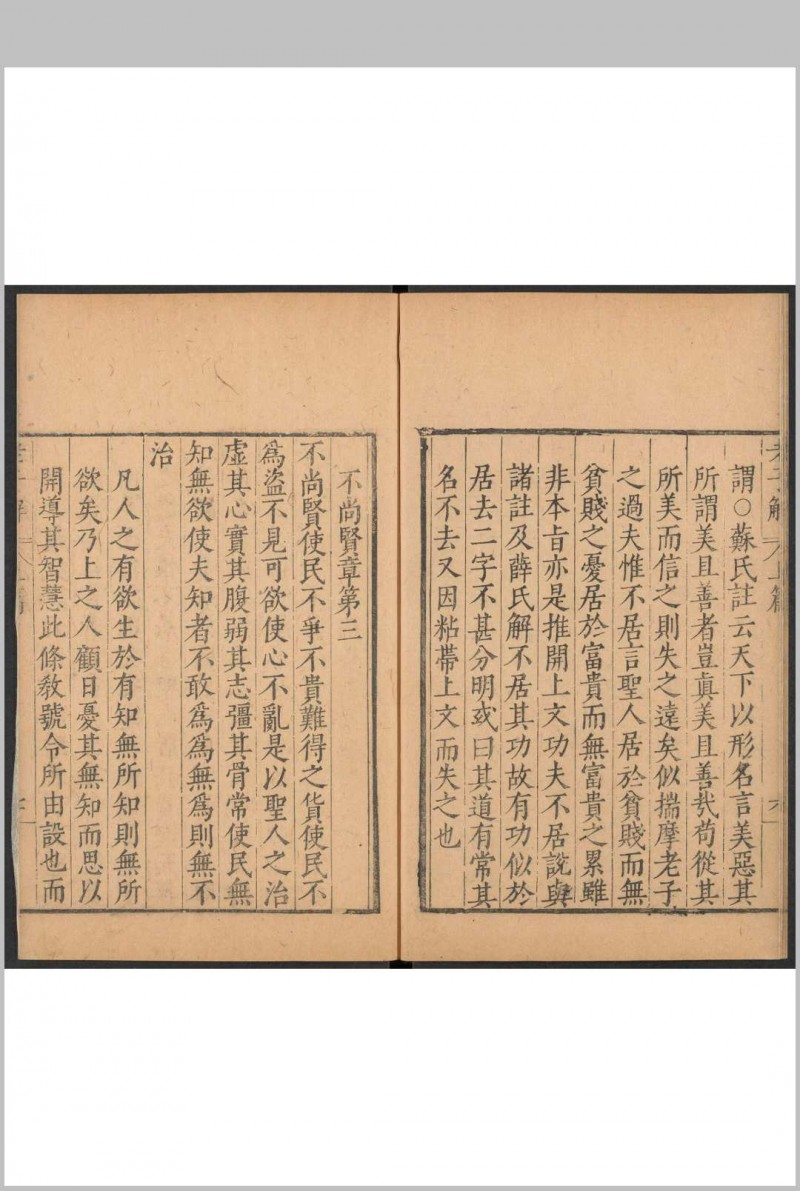 謂○蘇氏註云天下以形名言美惡其
所謂美且善者豈眞美且善哉苟從其
所美而信之則失之遠矣似揣摩老子
之過夫惟不居言聖人居於貧賤而無
貧賤之憂居於富貴而無富貴之累雖
非本旨亦是推開上文功夫不居說與
諸註及薛氏解不居其功故有功似於
居去二字不甚分明或曰其道有常其
名不去又因粘帶上文而失之也
不尚賢章第三
不尚賢使民不爭不貴難得之貨使民不
爲盜不見可欲使心不亂是以聖人之治
虛其心實其腹弱其志彊其骨常使民無
知無欲使夫知者不敢爲爲無爲則無不
治
凡人之有欲生於有知無所知則無所
欲矣乃上之人顧日憂其無知而思以
開導其智慧此條教號令所由設也而